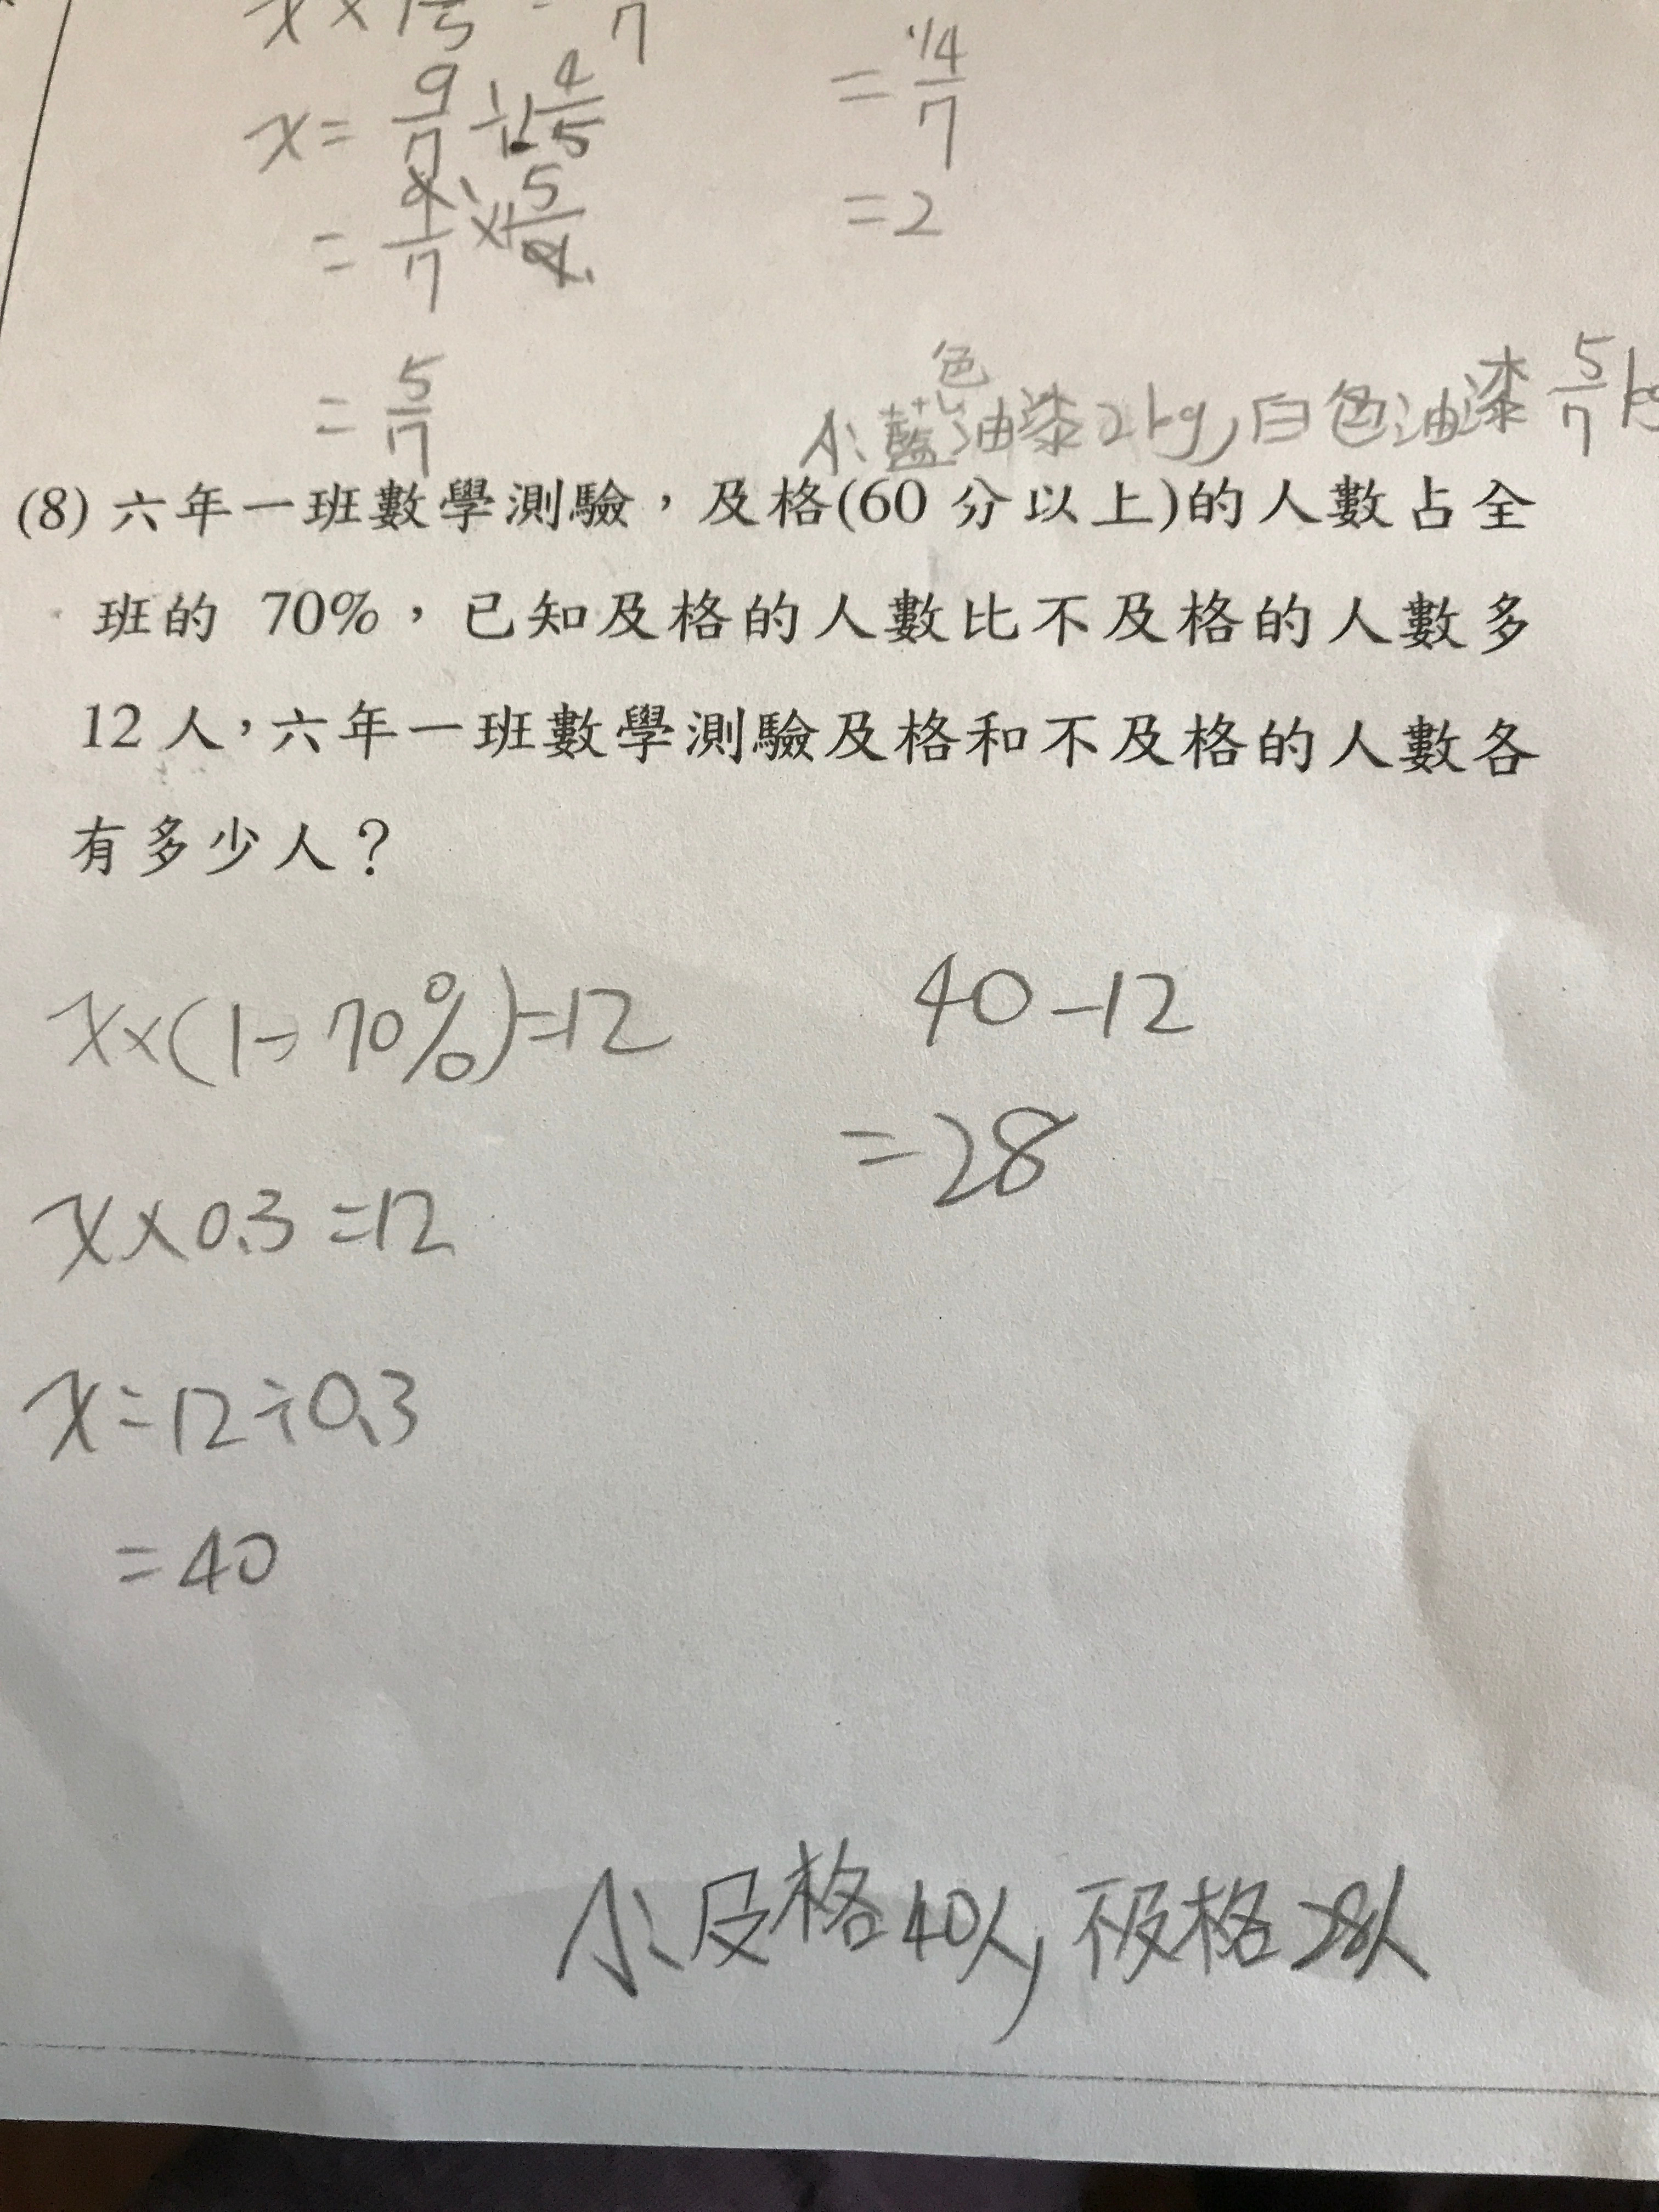 x = 9/7 ÷ 1 4/5
= 9/7 × 5/9
= 5/7
= 14/7
= 2
A:藍色油漆2kg,白色油漆5/7kg
(8) 六年一班數學測驗,及格(60 分以上)的人數占全
班的 70%,已知及格的人數比不及格的人數多
12 人,六年一班數學測驗及格和不及格的人數各
有多少人?
x×(1-70%)=12
x×0.3=12
x=12÷0.3
=40
40-12
=28
A:及格40人,不及格28人